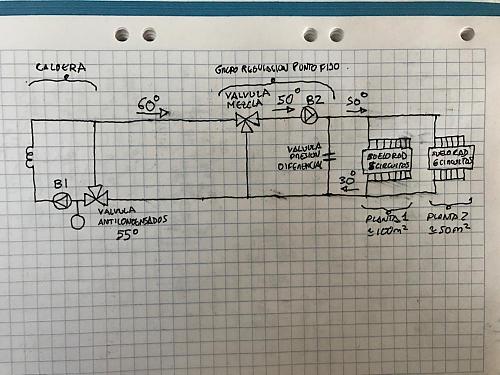 CALDERA
GRUPO REGULACION PUNTO FIJO
VALVULA
MEZCLA
60°
50°
B2
50°
VALVULA
PRESION
DIFERENCIAL
SUELO RAD
8 CIRCUITOS
SUELO RAD
6 CIRCUITOS
30°
B1
VALVULA
ANTICONDENSADOS
55°
PLANTA 1
≃100m²
PLANTA 2
≃50m²